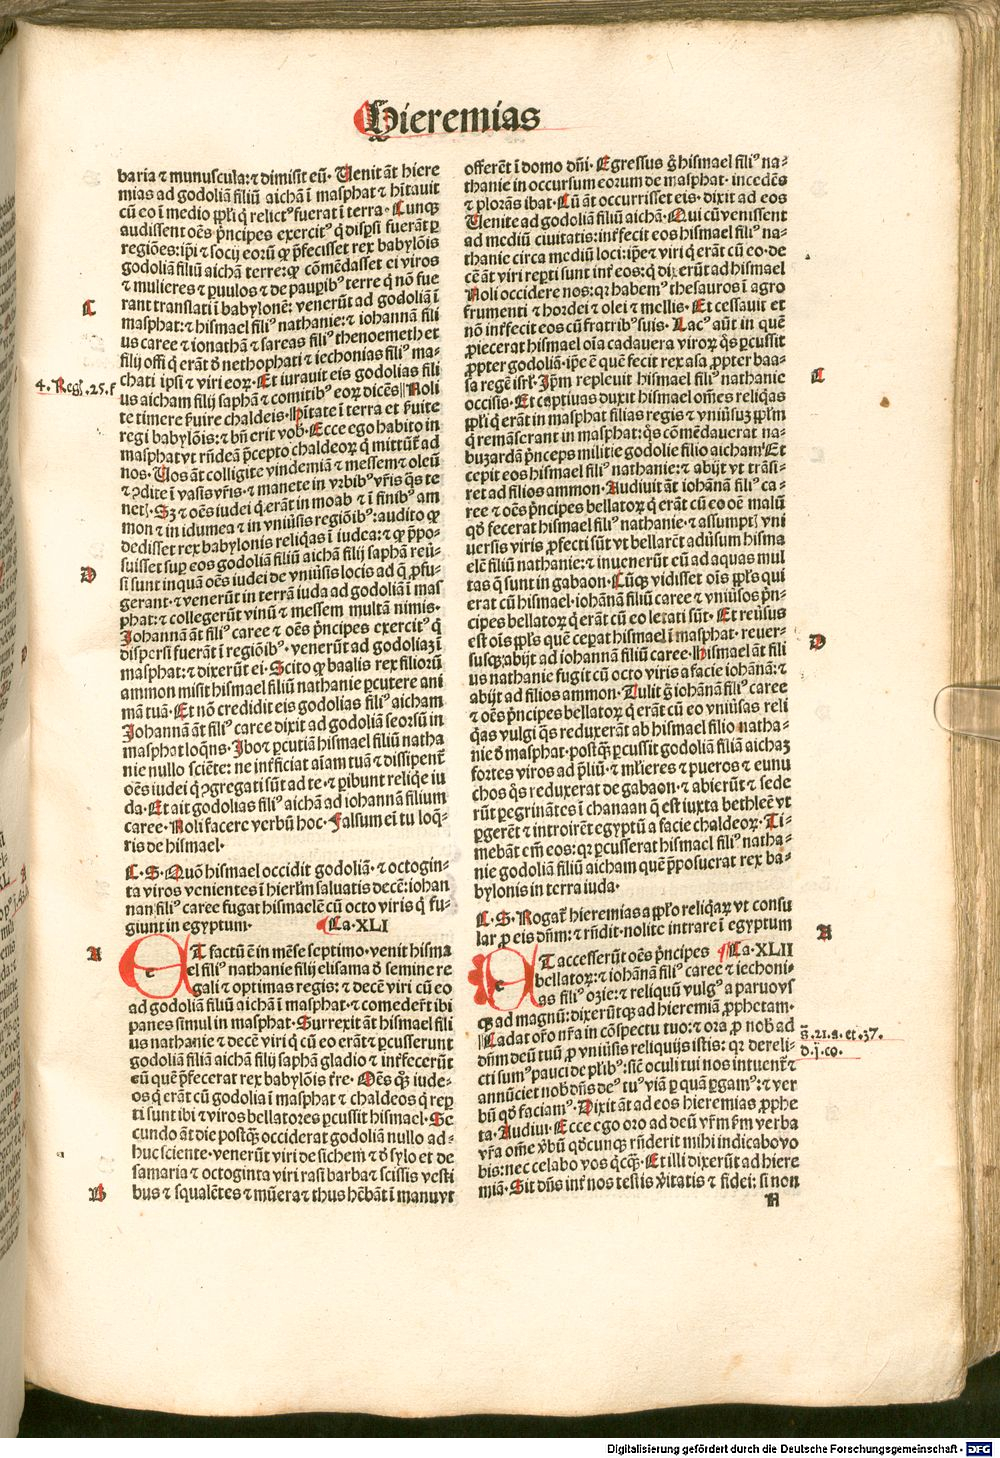 Hieremias
baria ⁊ munuscula: ⁊ dimisit eũ. Uenit ãt hiere
mias ad godoliã filiũ aichã ĩ masphat ⁊ hĩtauit
cũ eo ĩ medio ppl̃i q̃ relictꝰ fuerat ĩ terra. Cunqꝫ
audissent oẽs p̃ncipes exercitꝰ q̃ disp̱si fuerãt p̱
regiões: ip̃i ⁊ socij eorũ ꝙ p̃fecisset rex babylõis
godoliã filiũ aichã terre: ꝙ cõmẽdasset ei viros
⁊ mulieres ⁊ p̱uulos ⁊ de paup̱ibꝰ terre q̃ nõ fue
rant translati ĩ babylonẽ: venerũt ad godoliã ĩ
masphat: ⁊ hismael filiꝰ nathanie: ⁊ iohannã fili
us caree ⁊ ionathã ⁊ sareas filiꝰ thenoemeth et
filij offi q̃ erãt d̃ nethophati ⁊ iechonias filiꝰ ma-
chati ipsi ⁊ viri eoꝝ. Et iurauit eis godolias fili
us aicham filij saphã ⁊ comitibꝰ eoꝝ dicẽs Noli
te timere ẽuire chaldeis. Hĩtate ĩ terra et ẽuite
regi babylõis: ⁊ bñ erit vob̃. Ecce ego habito in
masphat vt rñdeã p̃cepto chaldeoꝝ q̃ mittũt̃ ad
nos. Uos ãt colligite vindemiã ⁊ messem ⁊ oleũ
⁊ ꝯdite ĩ vasis vr̃is. ⁊ manete in vrbibꝰ vr̃is q̃s te
net̃. Sꝫ ⁊ oẽs iudei q̃ erãt in moab ⁊ ĩ finibꝰ am
mon ⁊ in idumea ⁊ in vniũsis regiõibꝰ: audito ꝙ
dedisset rex babylonis reliq̃as ĩ iudea: ⁊ ꝙ p̃po-
suisset sup̱ eos godoliã filiũ aichã filij saphã reũ-
si sunt inquã oẽs iudei de vniũsis locis ad q̃ ꝓfu-
gerant. ⁊ venerũt in terrã iuda ad godoliã ĩ mas
phat: ⁊ collegerũt vinũ ⁊ messem multã nimis.
Johannã ãt filiꝰ caree ⁊ oẽs p̃ncipes exercitꝰ q̃
dispersi fuerãt ĩ regiõibꝰ. venerũt ad godoliaꝫ ĩ
masphat: ⁊ dixerũt ei. Scito ꝙ baalis rex filiorũ
ammon misit hismael filiũ nathanie p̱cutere ani
mã tuã. Et nõ credidit eis godolias filiꝰ aicham
Johannã ãt filiꝰ caree dixit ad godoliã seorsũ in
masphat loq̃ns. Jbo ⁊ p̱cutiã hismael filiũ natha
nie nullo sciẽte: ne inẽficiat aiam tuã ⁊ dissipent̃
oẽs iudei q̃ ꝯgregati sũt ad te. ⁊ p̱ibunt reliqe iu
da. Et ait godolias filiꝰ aichã ad iohannã filium
caree. Noli facere verbũ hoc. Falsum ei tu loq̃-
ris de hismael.
C. S. Quõ hismael occidit godoliã. ⁊ octogin-
ta viros venientes ĩ hierl̃m saluatis decẽ: iohan
nan filiꝰ caree fugat hismaelẽ cũ octo viris q̃ fu-
giunt in egyptum. Ca. XLI
ET factũ ẽ in mẽse septimo. venit hisma
el filiꝰ nathanie filij elisama d̃ semine re
gali ⁊ optimas regis: ⁊ decẽ viri cũ eo
ad godoliã filiũ aichã ĩ masphat. ⁊ comedert̃ ibi
panes simul in masphat. Surrexit ãt hismael fili
us nathanie ⁊ decẽ viri q̃ cũ eo erãt ⁊ p̱cusserunt
godoliã filiũ aichã filij saphã gladio ⁊ inẽfecerũt
eũ quẽ p̃fecerat rex babylõis t̃re. Oẽs q̃qꝫ iude-
os q̃ erãt cũ godolia ĩ masphat ⁊ chaldeos q̃ rep̱
ti sunt ibi ⁊ viros bellatores p̱cussit hismael. Se
cundo ãt die postq̃ꝫ occiderat godoliã nullo ad-
huc sciente. venerũt viri de sichem ⁊ d̃ sylo et de
samaria ⁊ octoginta viri rasi barba ⁊ scissis vesti
bus ⁊ squalẽtes ⁊ mũera ⁊ thus hẽbãt ĩ manu vt
C
4. Reg̃. 25. f
D
A
B
offerẽt ĩ domo dñi. Egressus g̃ hismael filiꝰ na-
thanie in occursum eorum de masphat. incedẽs
⁊ plorãs ibat. Cũ ãt occurrisset eis. dixit ad eos
Uenite ad godoliã filiũ aichã. Qui cũ venissent
ad mediũ ciuitatis: inẽfecit eos hismael filiꝰ na-
thanie circa mediũ loci: ip̃e ⁊ viri q̃ erãt cũ eo. de
cẽ ãt viri rep̱ti sunt inẽ eos: q̃ dixerũt ad hismael
Noli occidere nos: qꝛ habemꝰ thesauros ĩ agro
frumenti ⁊ hordei ⁊ olei ⁊ mellis. Et cessauit et
nõ inẽfecit eos cũ fratribꝰ suis. Lacꝰ aũt in quẽ
ꝓiecerat hismael oĩa cadauera viroꝝ q̃s p̱cussit
ꝓpter godoliã. ip̃e ẽ quẽ fecit rex asa ꝓpter baa-
sa regẽ isrl̃. Jp̃m repleuit hismael filiꝰ nathanie
occisis. Et captiuas duxit hismael om̃es reliq̃as
ppl̃i q̃ erãt in masphat filias regis ⁊ vniũsuꝫ ppl̃m
q̃ remãserant in masphat: q̃s cõmẽdauerat na-
buzardã p̃nceps militie godolie filio aicham Et
cepit eos hismael filiꝰ nathanie: ⁊ abijt vt trãsi-
ret ad filios ammon. Audiuit ãt iohãnã filiꝰ ca-
ree ⁊ oẽs p̃ncipes bellatoꝝ q̃ erãt cũ eo oẽ malũ
qd̃ fecerat hismael filiꝰ nathanie. ⁊ assumpt̃ vni
uersis viris ꝓfecti sũt vt bellarẽt aduũsum hisma
elẽ filiũ nathanie: ⁊ inuenerũt eũ ad aquas mul
tas q̃ sunt in gabaon. Cũqꝫ vidisset oĩs ppl̃s qui
erat cũ hismael. iohãnã filiũ caree ⁊ vniũsos p̃n-
cipes bellatoꝝ q̃ erãt cũ eo letati sũt. Et reũsus
est oĩs ppl̃s quẽ cep̱at hismael ĩ masphat. reuer-
susqꝫ abijt ad iohannã filiũ caree. Hismael ãt fili
us nathanie fugit cũ octo viris a facie iohãnã: ⁊
abijt ad filios ammon. Tulit g̃ iohãnã filiꝰ caree
⁊ oẽs p̃ncipes bellatoꝝ q̃ erãt cũ eo vniũsas reli
q̃as vulgi q̃s reduxerãt ab hismael filio natha-
nie d̃ masphat. postq̃ꝫ p̱cussit godoliã filiũ aichaꝫ
fortes viros ad p̃liũ. ⁊ ml̃ieres ⁊ pueros ⁊ eunu
chos q̃s reduxerat de gabaon. ⁊ abierũt ⁊ sede
rũt p̱egrinãtes ĩ chanaan q̃ est iuxta bethleẽ vt
p̱gerẽt ⁊ introirẽt egyptũ a facie chaldeoꝝ. Ti-
mebãt em̃ eos: qꝛ p̱cusserat hismael filiꝰ natha-
nie godoliã filiũ aicham quẽ p̃posuerat rex ba-
bylonis in terra iuda.
C. S. Rogat̃ hieremias a ppl̃o reliq̃aꝝ vt consu
lar ꝓ eis dñm: ⁊ rñdit. nolite intrare ĩ egyptum
ET accesserũt oẽs p̃ncipes Ca. XLII
bellatoꝝ: ⁊ iohãnã filiꝰ caree ⁊ iechoni-
as filiꝰ ozie: ⁊ reliquũ vulgꝰ a paruo vs
qꝫ ad magnũ: dixerũtqꝫ ad hieremiã ꝓphetam.
Cadat or̃o nr̃a in cõspectu tuo: ⁊ ora ꝓ nob̃ ad
dñm deũ tuũ ꝓ vniũsis reliquijs istis: qꝛ dereli-
cti sumꝰ pauci de pl̃ib: sic̃ oculi tui nos intuent̃ ⁊
annũciet nob̃ dñs deꝰ tuꝰ viã p̱ quã p̱gamꝰ: ⁊ ver
bũ qd̃ faciamꝰ. Dixit ãt ad eos hieremias ꝓphe
ta. Audiui. Ecce ego oro ad deũ vr̃m ẽm verba
vr̃a om̃e v̾bũ qd̃cunqꝫ rñderit mihi indicabo vo
bis: nec celabo vos q̃cq̃ꝫ. Et illi dixerũt ad hiere
miã. Sit dñs inẽ nos testis v̾itatis ⁊ fidei: si non
C
D
A
s̃. 21. a. et. 37.
d. j. co.
A
Digitalisierung gefördert durch die Deutsche Forschungsgemeinschaft - DFG